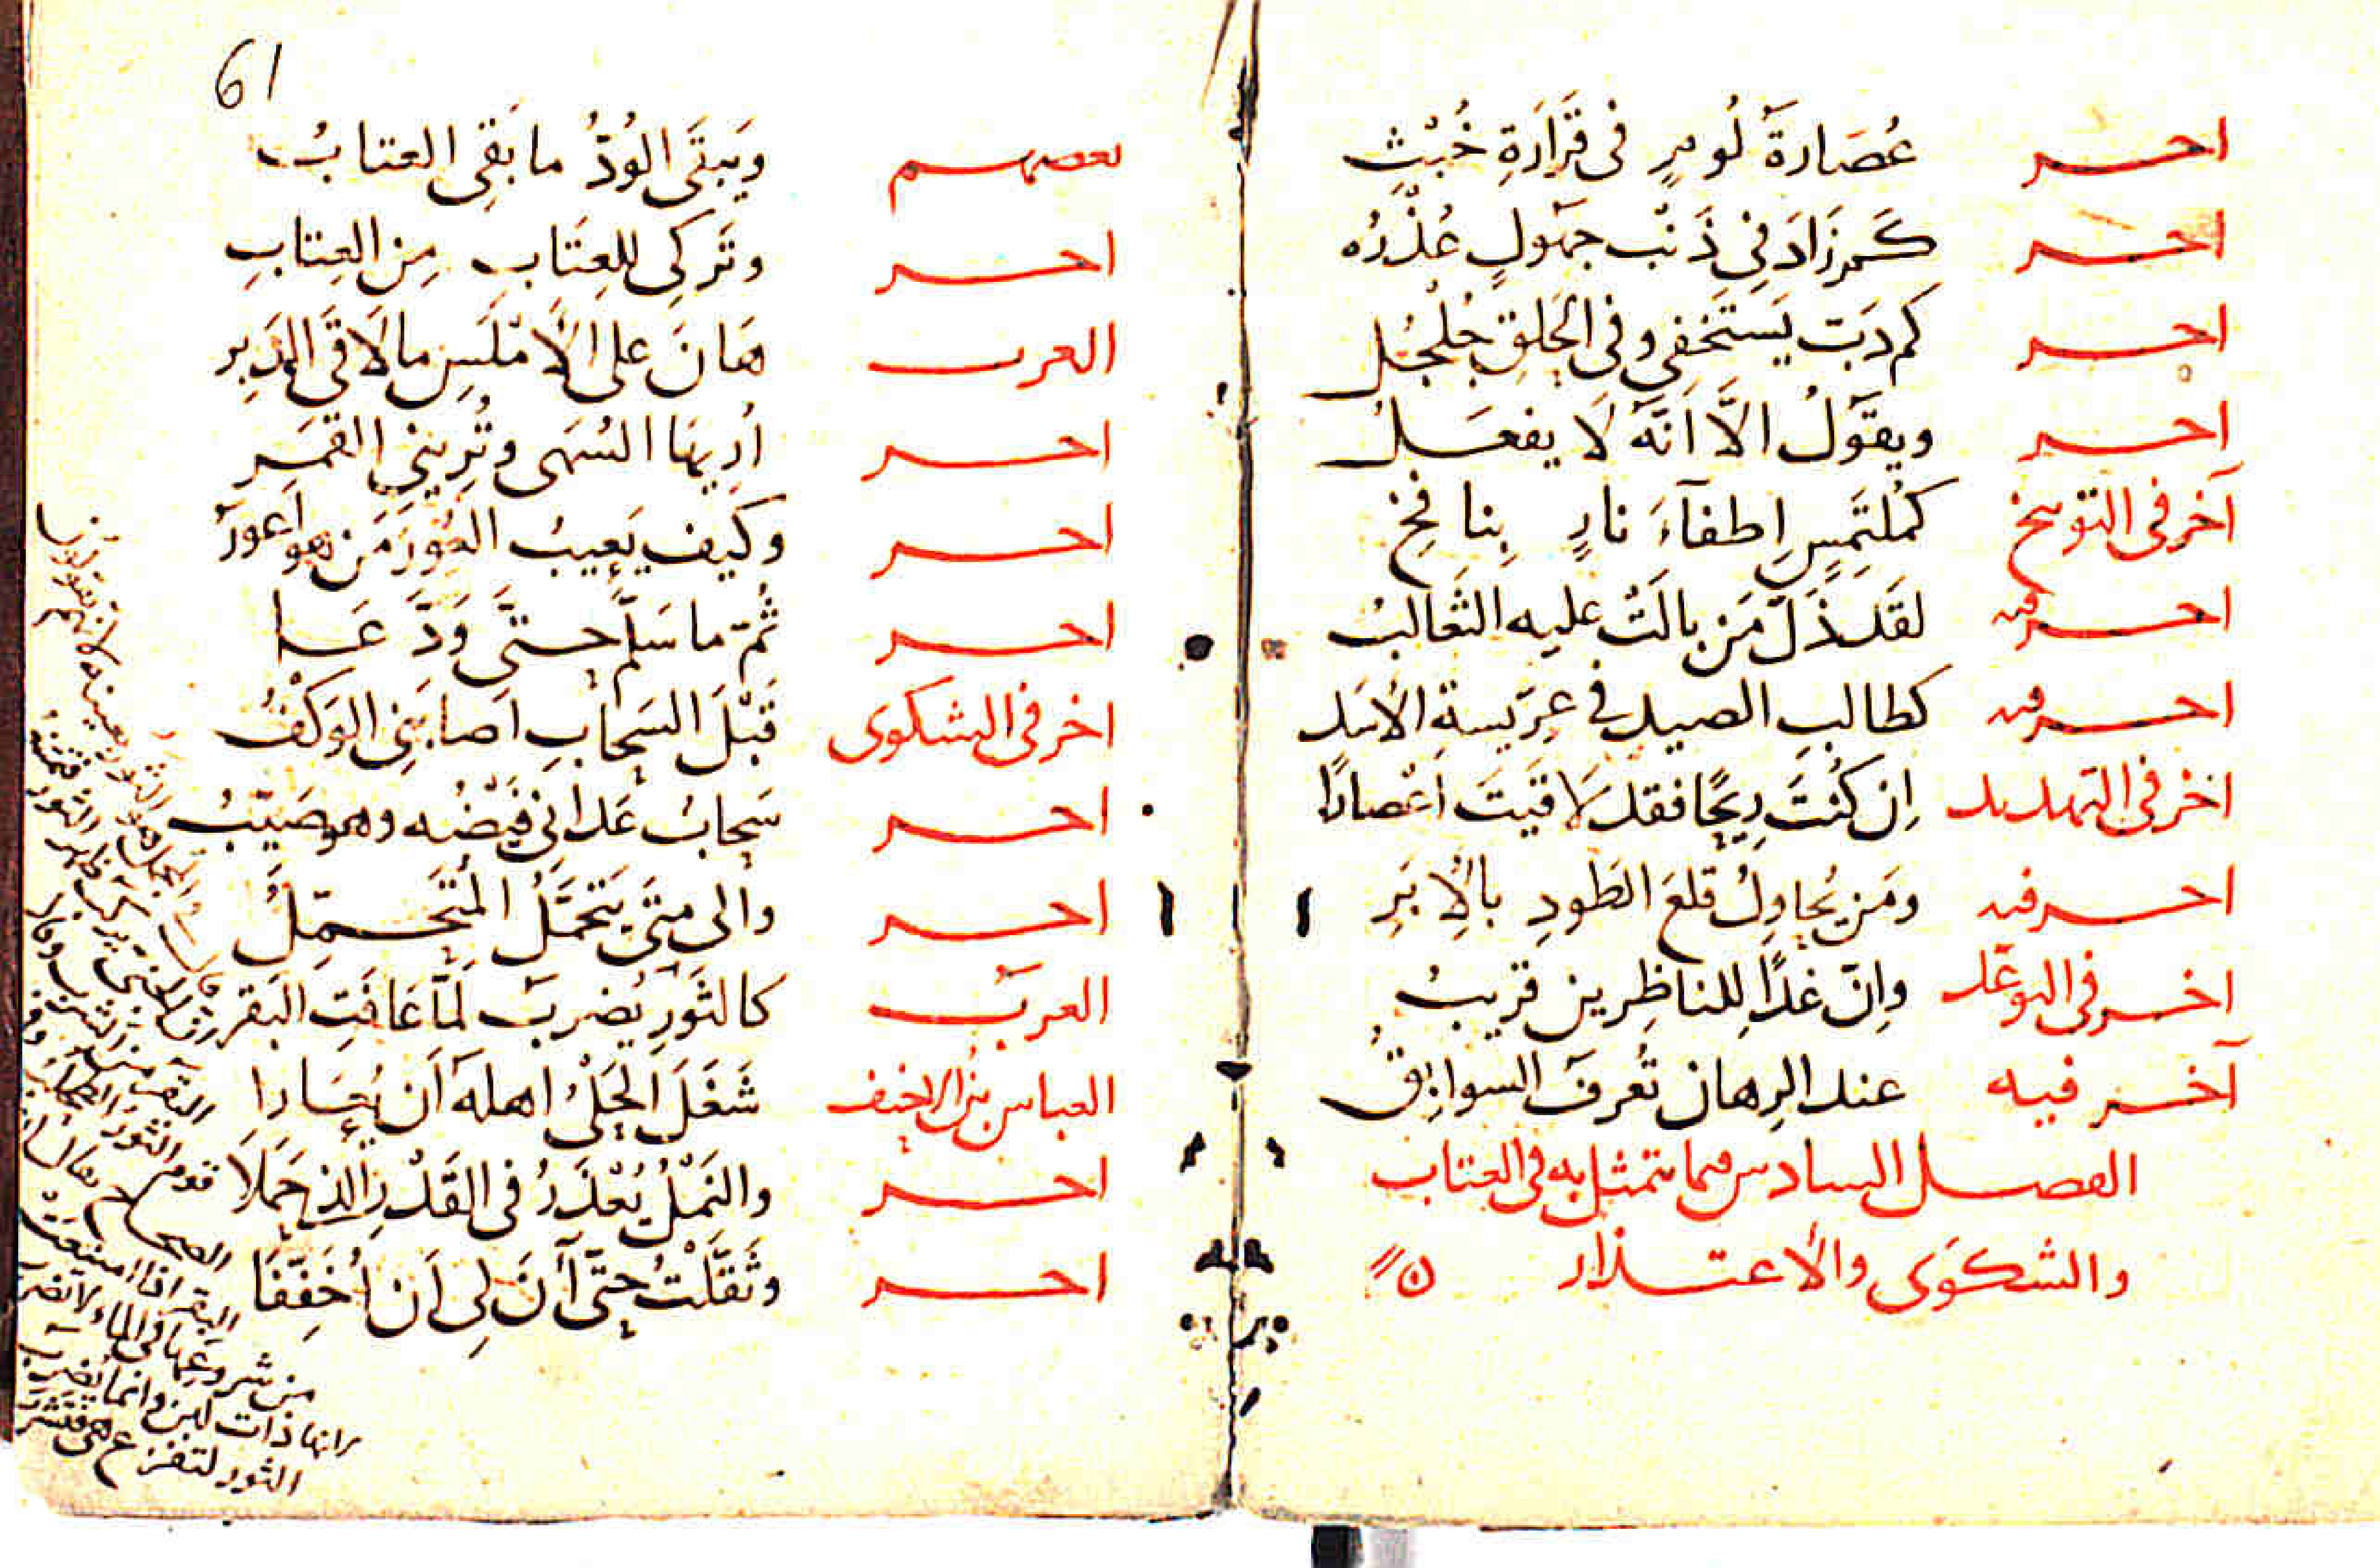 احر عُصَارَةُ لُومٍ فى قَرَارَةِ خُبْثِ
احر كَم زَادَ فِى ذَنْب جهَولٍ عُذْرُه
احر كم دَبّ يَستَخفِى وفى الحَلقِ جُلْجُل
احر ويقوَلُ الاَّ اَنّه لَا يفعَل
آخر فى التوبيخ كمُلتَمِسٍ اِطفآءَ نارٍ بِنافِخ
احر فيه لقَد ذَلّ مَن بالَتْ عليه الثَعالبُ
احر فيه كطالبِ الصيدِ فى عِرّيسةِ الاَسَد
اخر فى التهديد اِن كنُتَ رِيحًا فقد لَاقيَتَ اَعْصارًا
احر فيه ومَن يُحاوِلُ قلعَ الطَودِ بالإبَرِ
اخر فى التوعّد واِنّ غدًا لِلناظِرين قريبُ
آخر فيه عند الرِهان تُعرفَ السوابِقُ
الفصل السادس فيما يتمثل به فى العتاب
والشكوَى والأعتذار
61
بعضهم ويَبقَى الوُدُّ ما بَقِى العتابُ
احر وتَركِى للعِتَابِ مِن العِتابِ
العرب هَانَ على الأَمْلَسِ ما لَاقَى الدَبِر
احر اُرِيهَا السُهَى وتُرِينِى القمَر
احر وكَيف يَعِيبُ العُورَ مَن هو اَعورُ
احر ثُمّ ما سَلّم حتَّى وَدَّعَا
اخر فى الشكوى قَبْلَ السَحابِ اَصابَنِى الوَكْفُ
احر سَحابُ عَدانِى فَيْضُه وهو صَيّبُ
احر والى متَى يَتَحمَّلُ المُتَحمِّلُ
العرب كالثَورِ يُضربَ لَمّا عَافَتِ البَقر
العباس بن الاحنف شَغَلَ الحَلْىُ اهلهَ اَن يُعَارا
احر والنَمْلُ يُعْذَرُ فى القَدْرِ الذى حَمَلَا
احر وثَقَّلْتُ حتّى آنَ لِى اَنْ اُخَفِّفَا
البقر اذا امتنعت
من شروعها فى الماء لا تضرب
لانها ذات لبن وانما يضرب
الثور لتفزع هى فتشرب